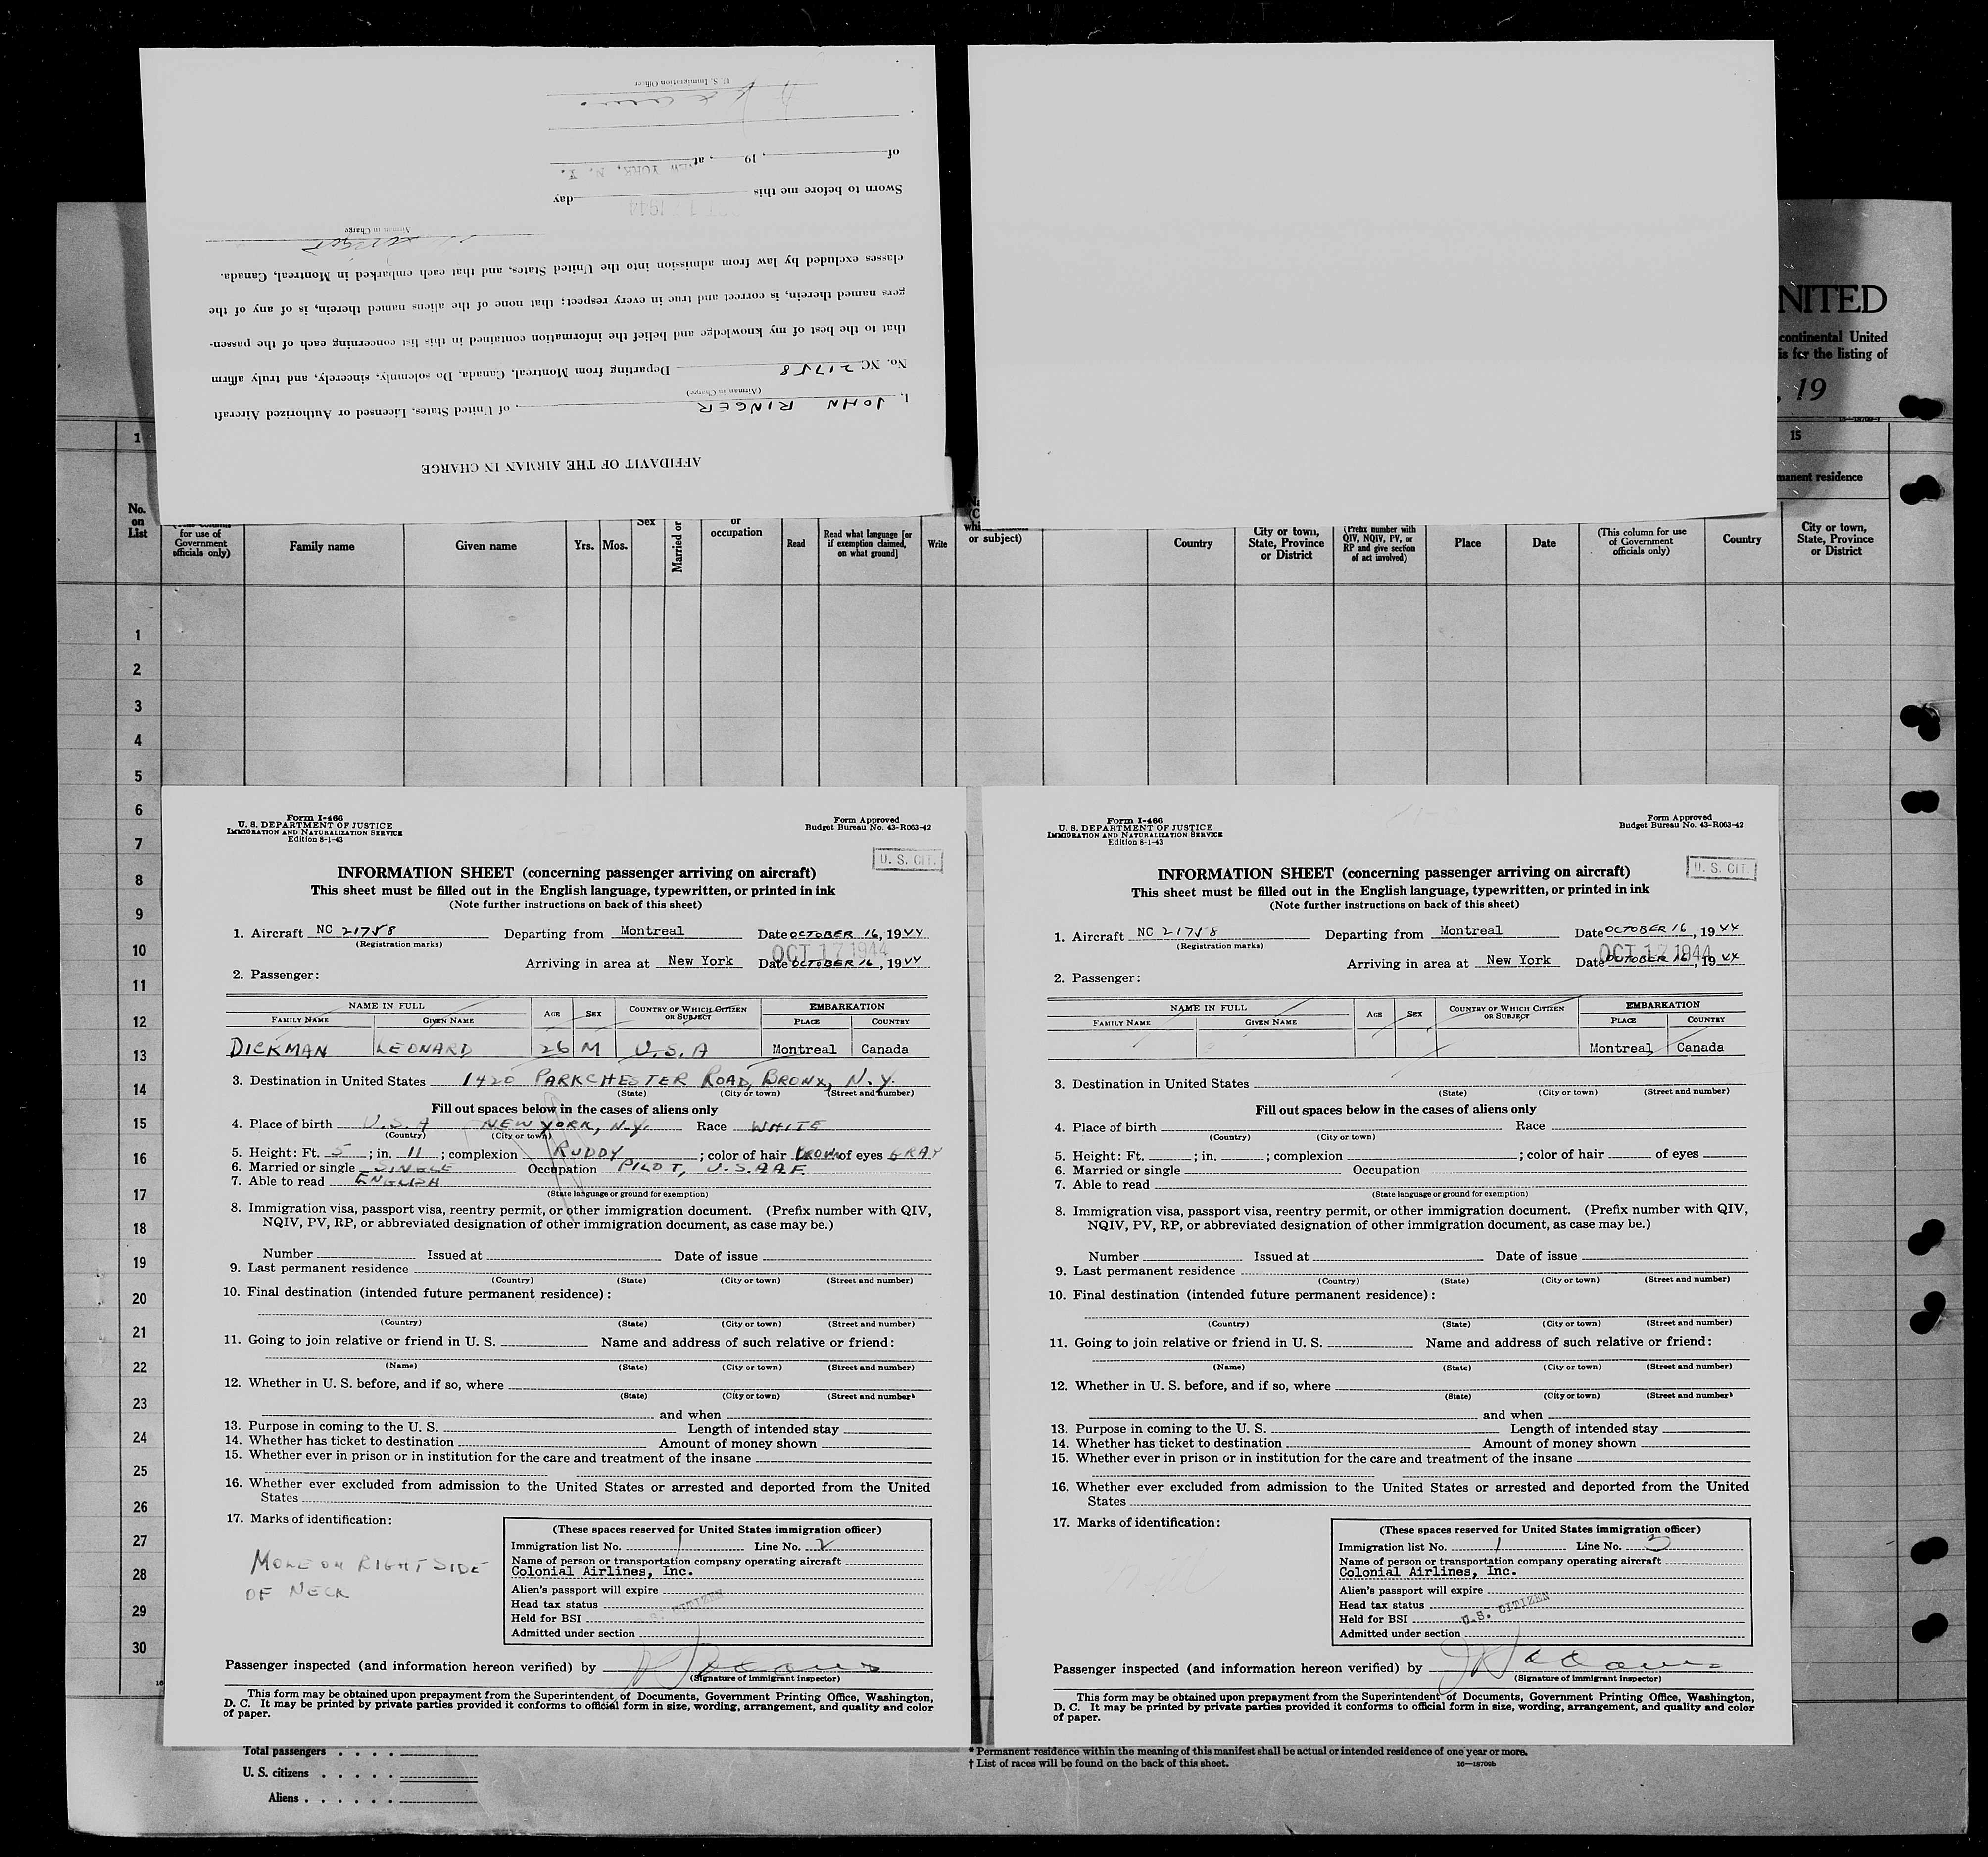 U. S. Immigration Officer
of , 19 , at
NEW YORK, N. Y.
Sworn to before me this day
OCT 17 1944
Airman in Charge
classes excluded by law from admission into the United States, and that each embarked in Montreal, Canada.
gers named therein, is correct and true in every respect; that none of the aliens named therein, is of any of the
that to the best of my knowledge and belief the information contained in this list concerning each of the passen-
No. NC 21758 Departing from Montreal, Canada. Do solemnly, sincerely, and truly affirm
(Airman in Charge)
I, JOHN RINGER, of United States. Licensed or Authorized Aircraft
AFFIDAVIT OF THE AIRMAN IN CHARGE
NITED
continental United
is for the listing of
, 19
1
15
manent residence
No. on List
for use of Government officials only)
Family name
Given name
Yrs.
Mos.
Sex
Married or
or occupation
Read
Read what language [or if exemption claimed, on what ground]
Write
or subject)
Country
City or town, State, Province or District
(Prefix number with QIV, NQIV, PV, or RP and give section of act involved)
Place
Date
(This column for use of Government officials only)
Country
City or town, State, Province or District
1
2
3
4
5
6
7
8
9
10
11
12
13
14
15
16
17
18
19
20
21
22
23
24
25
26
27
28
29
30
Form I-466
U. S. DEPARTMENT OF JUSTICE
IMMIGRATION AND NATURALIZATION SERVICE
Edition 8-1-43
Form Approved
Budget Bureau No. 43-R063-42
U. S. CIT.
INFORMATION SHEET (concerning passenger arriving on aircraft)
This sheet must be filled out in the English language, typewritten, or printed in ink
(Note further instructions on back of this sheet)
1. Aircraft NC 21758 Departing from Montreal Date OCTOBER 16, 1944
(Registration marks)
OCT 17 1944
Arriving in area at New York Date OCTOBER 16, 1944
2. Passenger:
NAME IN FULL AGE SEX COUNTRY OF WHICH CITIZEN OR SUBJECT EMBARKATION
FAMILY NAME GIVEN NAME PLACE COUNTRY
DICKMAN LEONARD 26 M U.S.A Montreal Canada
3. Destination in United States 1420 PARKCHESTER ROAD, BRONX, N.Y.
(State) (City or town) (Street and number)
Fill out spaces below in the cases of aliens only
4. Place of birth U.S.A NEW YORK, N.Y. Race WHITE
(Country) (City or town)
5. Height: Ft. 5; in. 11; complexion RUDDY; color of hair BROWN of eyes GRAY
6. Married or single SINGLE Occupation PILOT, U.S.A.A.F.
7. Able to read ENGLISH
(State language or ground for exemption)
8. Immigration visa, passport visa, reentry permit, or other immigration document. (Prefix number with QIV,
NQIV, PV, RP, or abbreviated designation of other immigration document, as case may be.)
Number Issued at Date of issue
9. Last permanent residence
(Country) (State) (City or town) (Street and number)
10. Final destination (intended future permanent residence):
(Country) (State) (City or town) (Street and number)
11. Going to join relative or friend in U. S. Name and address of such relative or friend:
(Name) (State) (City or town) (Street and number)
12. Whether in U. S. before, and if so, where
(State) (City or town) (Street and number)
and when
13. Purpose in coming to the U. S. Length of intended stay
14. Whether has ticket to destination Amount of money shown
15. Whether ever in prison or in institution for the care and treatment of the insane
16. Whether ever excluded from admission to the United States or arrested and deported from the United
States
17. Marks of identification:
MOLE ON RIGHT SIDE
OF NECK
(These spaces reserved for United States immigration officer)
Immigration list No. 1 Line No. 2
Name of person or transportation company operating aircraft
Colonial Airlines, Inc.
Alien's passport will expire
Head tax status
U.S. CITIZEN
Held for BSI
Admitted under section
Passenger inspected (and information hereon verified) by
(Signature of immigrant inspector)
This form may be obtained upon prepayment from the Superintendent of Documents, Government Printing Office, Washington,
D. C. It may be printed by private parties provided it conforms to official form in size, wording, arrangement, and quality and color
of paper.
Form I-466
U. S. DEPARTMENT OF JUSTICE
IMMIGRATION AND NATURALIZATION SERVICE
Edition 8-1-43
Form Approved
Budget Bureau No. 43-R063-42
U. S. CIT.
INFORMATION SHEET (concerning passenger arriving on aircraft)
This sheet must be filled out in the English language, typewritten, or printed in ink
(Note further instructions on back of this sheet)
1. Aircraft NC 21758 Departing from Montreal Date OCTOBER 16, 1944
(Registration marks)
OCT 17 1944
Arriving in area at New York Date OCTOBER 16, 1944
2. Passenger:
NAME IN FULL AGE SEX COUNTRY OF WHICH CITIZEN OR SUBJECT EMBARKATION
FAMILY NAME GIVEN NAME PLACE COUNTRY
Montreal Canada
3. Destination in United States
(State) (City or town) (Street and number)
Fill out spaces below in the cases of aliens only
4. Place of birth Race
(Country) (City or town)
5. Height: Ft. ; in. ; complexion ; color of hair of eyes
6. Married or single Occupation
7. Able to read
(State language or ground for exemption)
8. Immigration visa, passport visa, reentry permit, or other immigration document. (Prefix number with QIV,
NQIV, PV, RP, or abbreviated designation of other immigration document, as case may be.)
Number Issued at Date of issue
9. Last permanent residence
(Country) (State) (City or town) (Street and number)
10. Final destination (intended future permanent residence):
(Country) (State) (City or town) (Street and number)
11. Going to join relative or friend in U. S. Name and address of such relative or friend:
(Name) (State) (City or town) (Street and number)
12. Whether in U. S. before, and if so, where
(State) (City or town) (Street and number)
and when
13. Purpose in coming to the U. S. Length of intended stay
14. Whether has ticket to destination Amount of money shown
15. Whether ever in prison or in institution for the care and treatment of the insane
16. Whether ever excluded from admission to the United States or arrested and deported from the United
States
17. Marks of identification:
(These spaces reserved for United States immigration officer)
Immigration list No. 1 Line No. 3
Name of person or transportation company operating aircraft
Colonial Airlines, Inc.
Alien's passport will expire
Head tax status
U.S. CITIZEN
Held for BSI
Admitted under section
Passenger inspected (and information hereon verified) by
(Signature of immigrant inspector)
This form may be obtained upon prepayment from the Superintendent of Documents, Government Printing Office, Washington,
D. C. It may be printed by private parties provided it conforms to official form in size, wording, arrangement, and quality and color
of paper.
Total passengers . . . .
U. S. citizens . . . . .
Aliens . . . . . .
* Permanent residence within the meaning of this manifest shall be actual or intended residence of one year or more.
† List of races will be found on the back of this sheet.
16—18700b